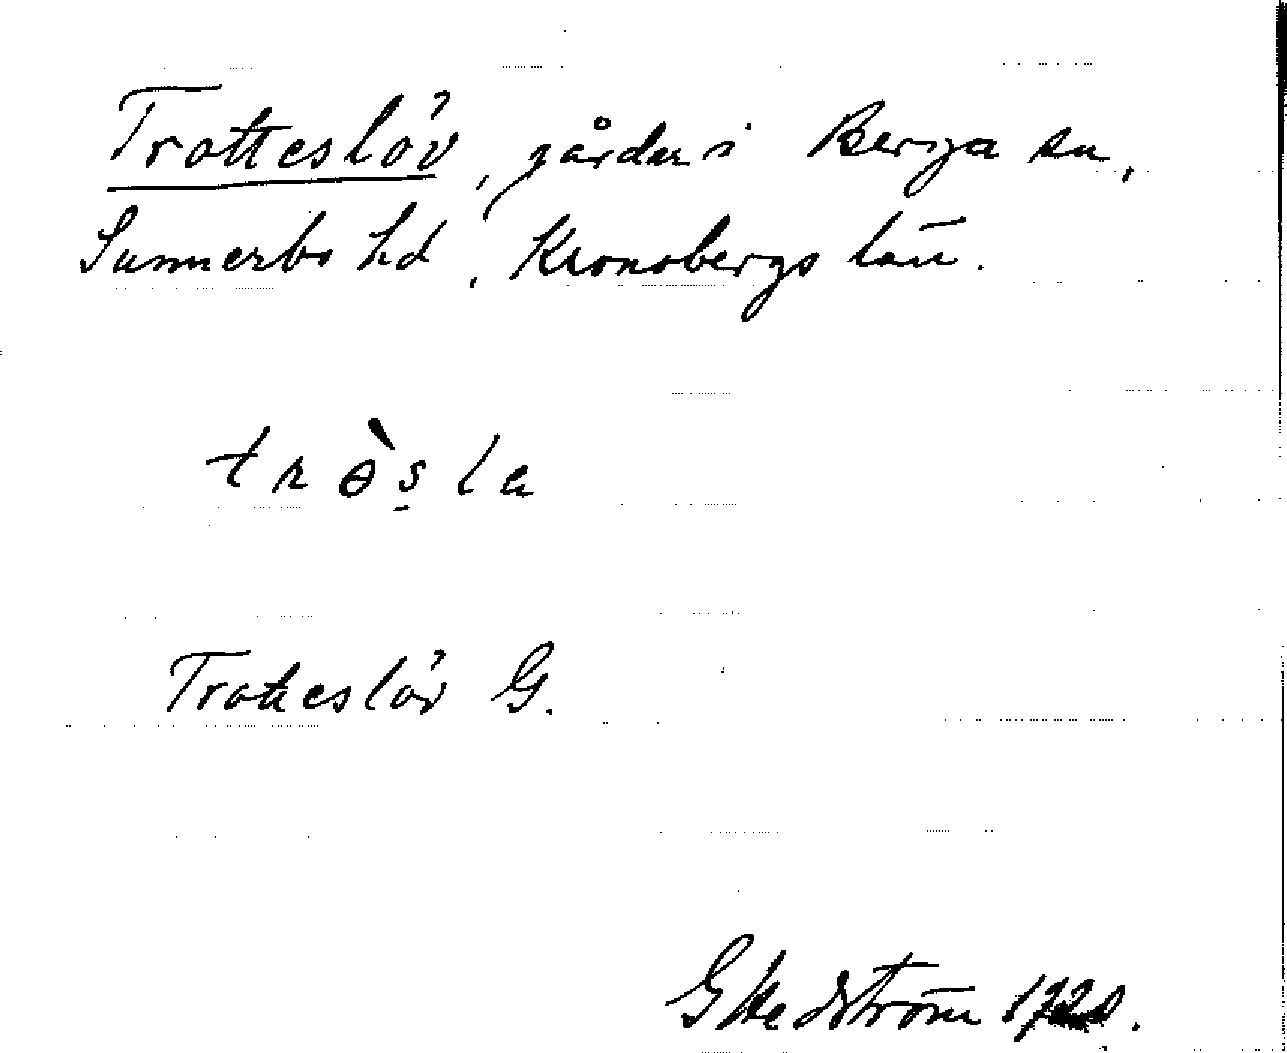 Trotteslöv, gårdar i Berga sn,
Sunnerbo hd, Kronobergs län.
trɵ̀s̱la
Trotteslöv G.
G Hedström